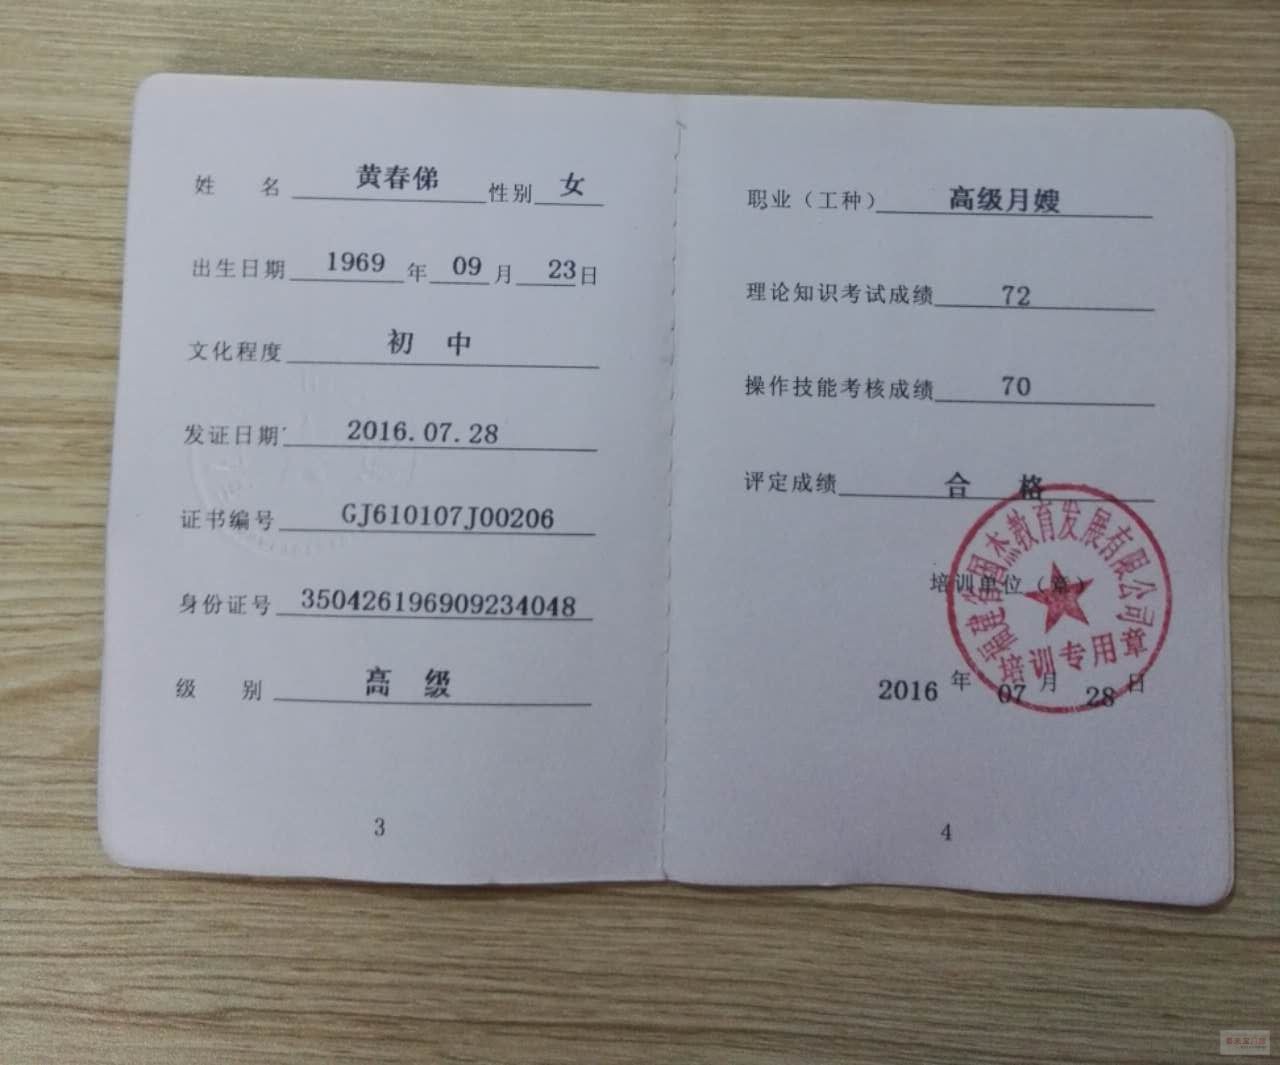 姓 名 黄春俤 性别 女
出生日期 1969 年 09 月 23 日
文化程度 初 中
发证日期 2016.07.28
证书编号 GJ610107J00206
身份证号 350426196909234048
级 别 高 级
3
职业（工种） 高级月嫂
理论知识考试成绩 72
操作技能考核成绩 70
评定成绩 合 格
培训单位（章）
福建省国杰教育发展有限公司
培训专用章
2016 年 07 月 28 日
4